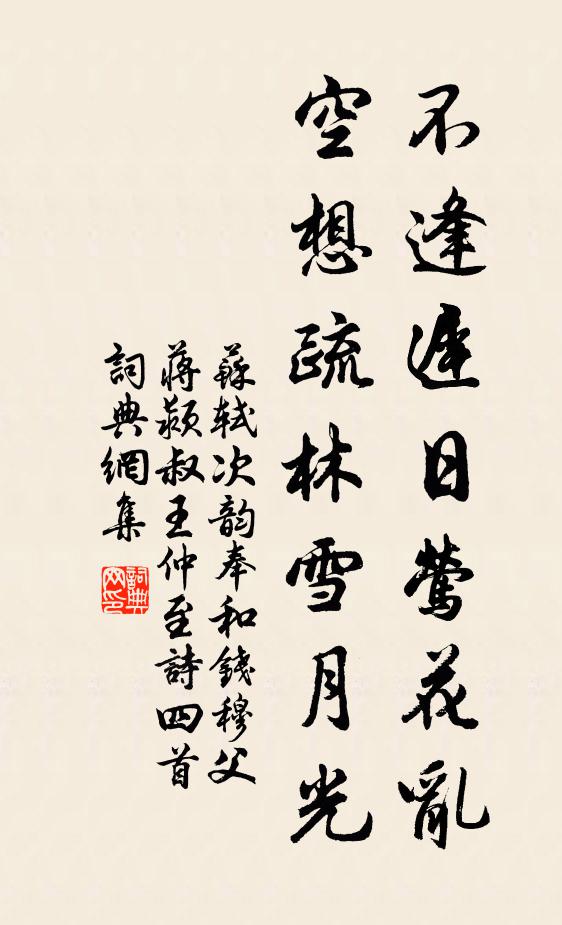 不逢遲日鶯花亂
空想疏林雪月光
蘇軾次韵奉和錢穆父
蔣潁叔王仲至詩四首
詞典網集
詞典